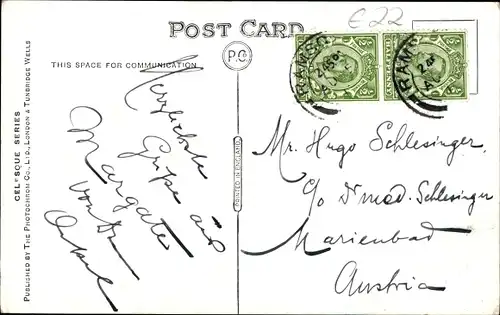 POST CARD
£22
THIS SPACE FOR COMMUNICATION
P.C.
RAMSG
RAMS
Herzlichste
Grüße aus
Margate
von Dr
Onkel
Mr. Hugo Schlesinger
c/o Dr med. Schlesinger
Marienbad
Austria
PRINTED IN ENGLAND
CELESQUE SERIES
PUBLISHED BY THE PHOTOCHROM CO., LTD., LONDON & TUNBRIDGE WELLS